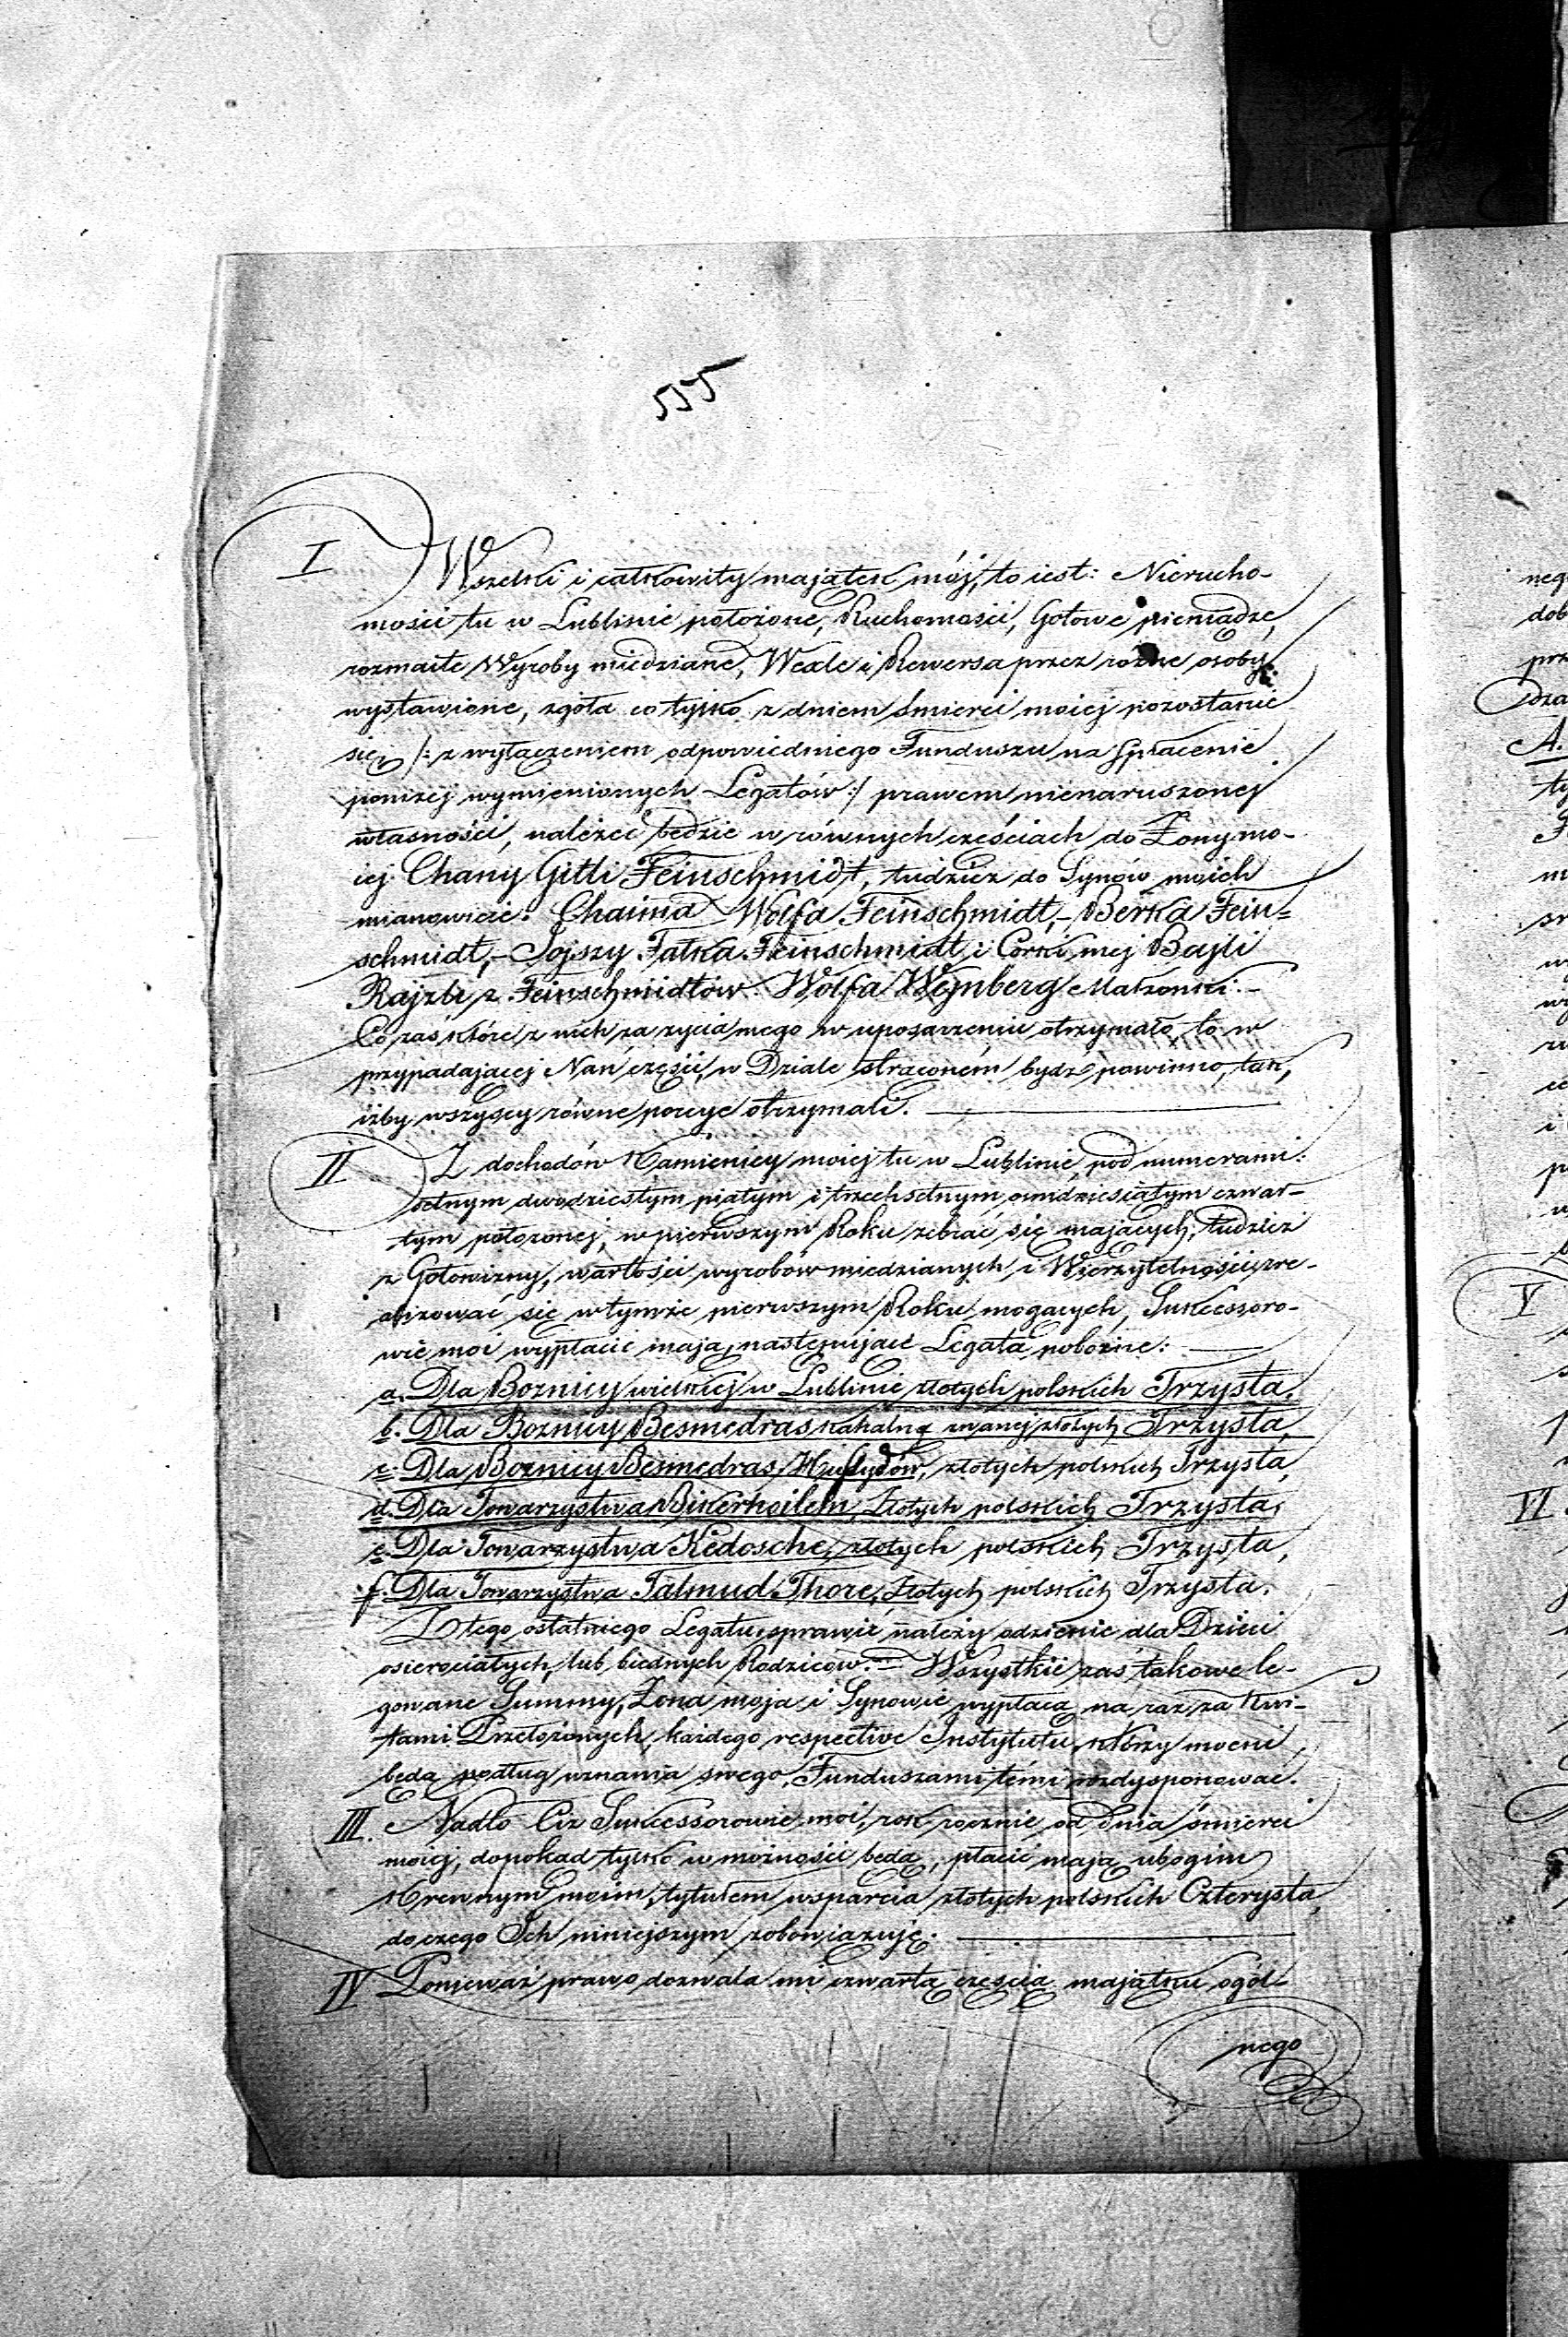 555
I Wszelki i całkowity majątek mój, to iest: Nierucho-
mości tu w Lublinie położone, Ruchomości, Gotowe pieniądze,
rozmaite Wyroby miedziane, Wexle i Rewersa przez rożne osoby
wystawione, zgoła co tylko z dniem śmierci moiej pozostanie
się, /: z wyłączeniem odpowiedniego Funduszu na spłacenie
poniżej wymienionych Legatów :/ prawem nienaruszonej
własności, należeć będzie w równych częściach do Żony mo-
iej Chany Gitli Feinschmidt, tudzież do Synów moich
mianowicie: Chaima Wolfa Feinschmidt, - Berka Fein=
schmidt, - Jojszy Falka Feinschmidt i Córki mej Bajli
Rajzli z Feinschmidtów Wolfa Wejnberg Małżonki. -
Co zaś które z nich za życia mego w uposażeniu otrzymało, to w
przypadającej Nań części, w Dziale strąconém bydź powinno, tak,
iżby wszyscy równe porcye otrzymali.
II Z dochodów Kamienicy moiej tu w Lublinie pod numerami:
setnym dwudziestym piątym i trzechsetnym ośmdziesiątym czwar-
tym położonej, w pierwszym Roku zebrać się mających, tudzież
z Gotowizny, wartości wyrobów miedzianych i Wierzytelności zre-
alizować się w tymże pierwszym Roku mogących, Sukcessoro-
wie moi wypłacić mają następujące Legata pobożne:
a. Dla Bożnicy wielkiej w Lublinie złotych polskich Trzysta,
b. Dla Bożnicy Besmedras kahalną zwanej złotych Trzysta,
c. Dla Bożnicy Besmedras złotych polskich Trzysta,
d. Dla Towarzystwa Bikerhoilem, Złotych polskich Trzysta,
e. Dla Towarzystwa Kedosche, złotych polskich Trzysta,
f. Dla Towarzystwa Talmud Thore, Złotych polskich Trzysta.
Z tego ostatniego Legatu, sprawić należy odzienie dla Dzieci
osierociałych, lub biednych Rodziców. = Wszystkie zaś takowe le-
gowane Summy, Żona moja i Synowie wypłacą na raz za Kwi-
tami Przełożonych, każdego respective Instytutu, którzy mocni
będą podług uznania swego, Funduszami témi rozdysponować.
III. Nadto Ciż Sukcessorowie moi, rok rocznie od dnia śmierci
moiej, dopokąd tylko w możności będą, płacić mają ubogim
Krewnym moim, tytułem wsparcia złotych polskich Czterysta,
do czego Ich niniejszym zobowiązuję.
IV Ponieważ prawo dozwala mi czwartą częścią majątku ogól-
nego